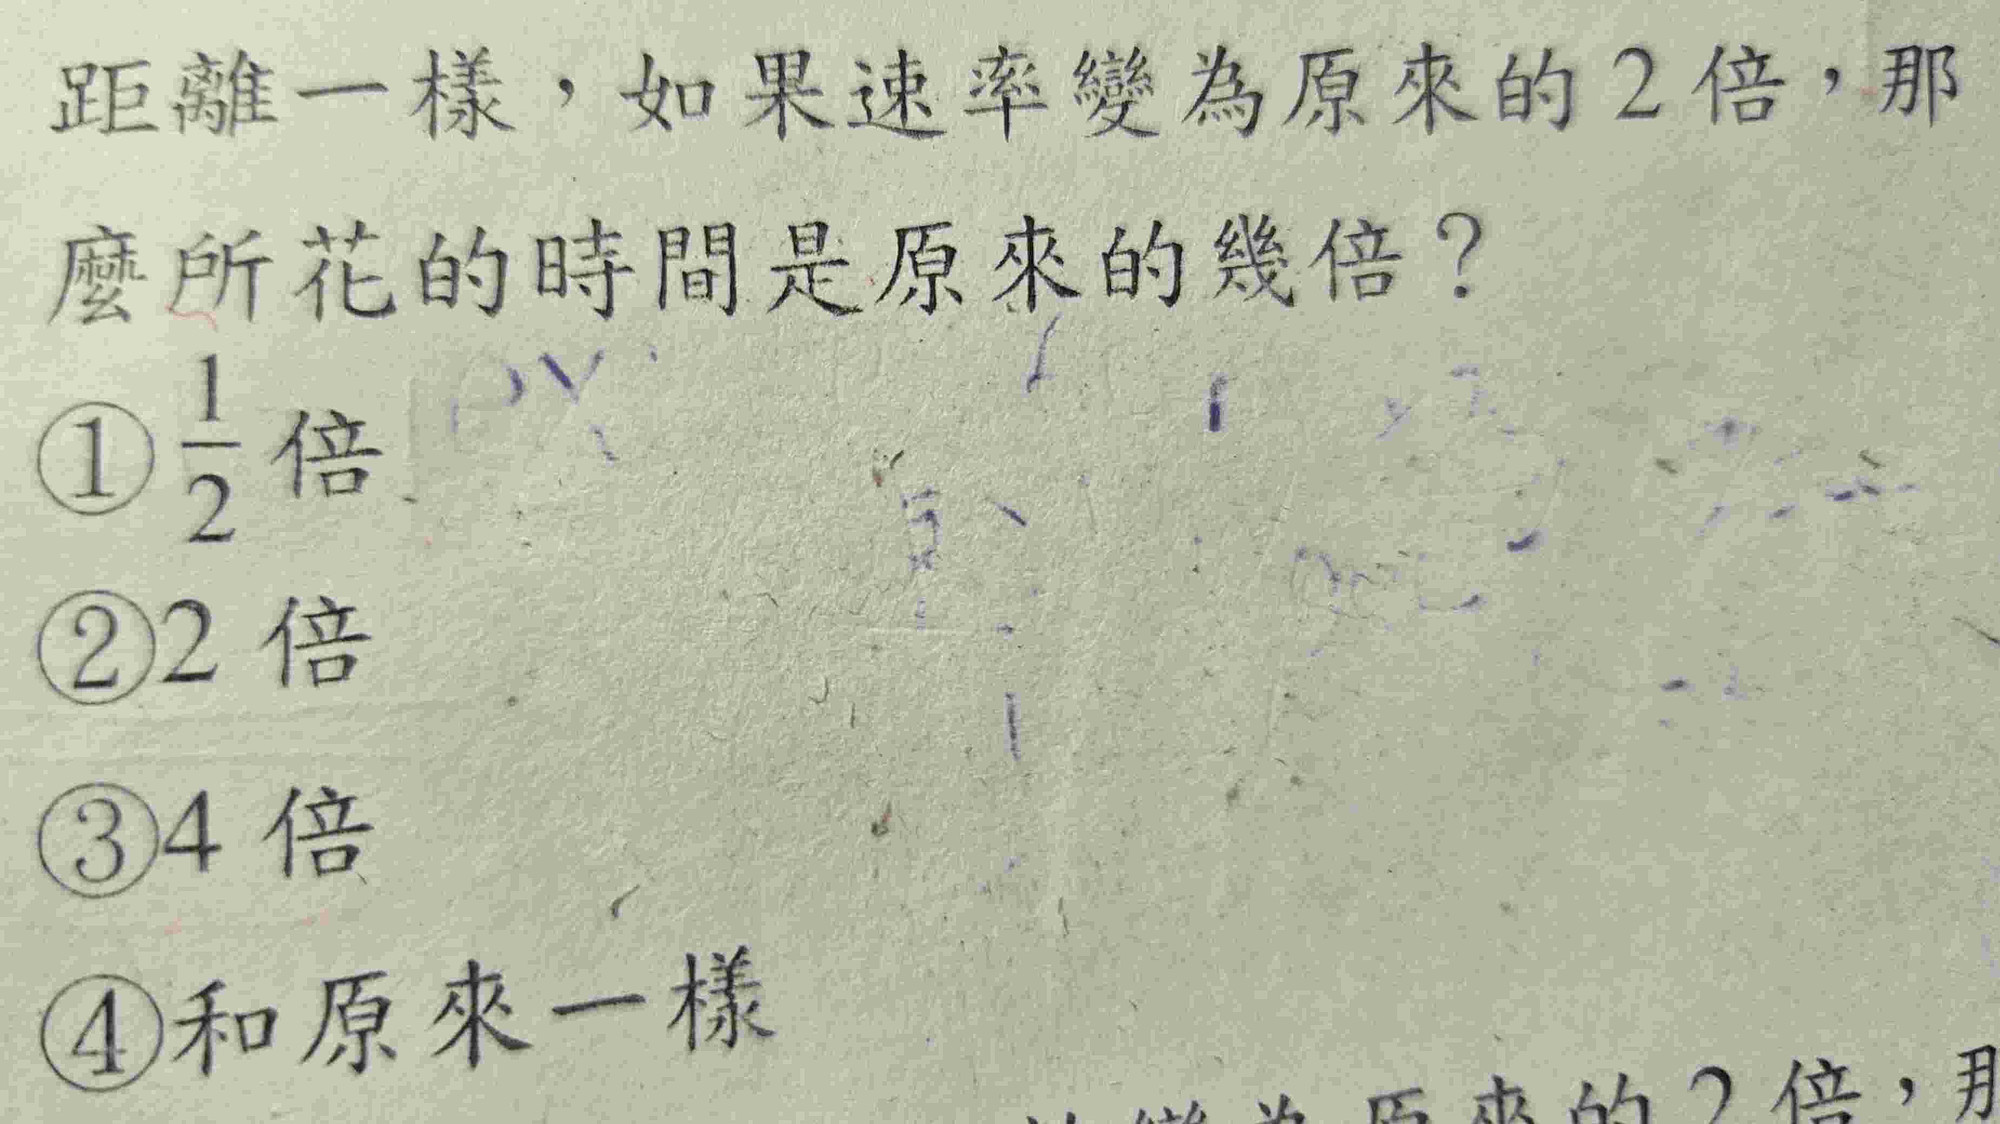 距離一樣，如果速率變為原來的2倍，那
麼所花的時間是原來的幾倍？
①1/2倍
②2倍
③4倍
④和原來一樣
變為原來的2倍，那